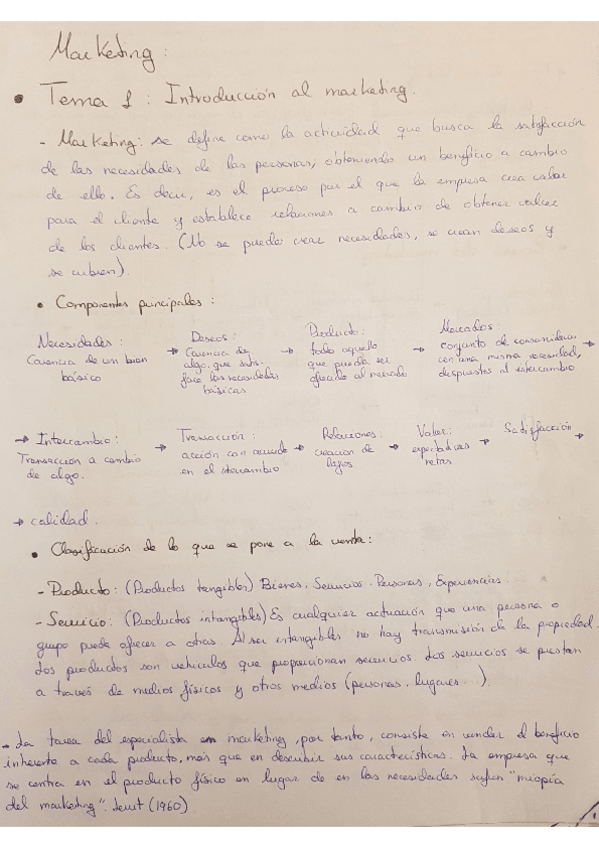 Marketing:
• Tema 1: Introducción al marketing.
- Marketing: se define como la actividad que busca la satisfacción
de las necesidades de las personas, obteniendo un beneficio a cambio
de ello. Es decir, es el proceso por el que la empresa crea valor
para el cliente y establece relaciones a cambio de obtener valor
de los clientes. (No se puede crear necesidades, se crean deseos y
se cubren).
• Componentes principales:
Necesidades: Carencia de un bien básico
→ Deseos: Carencia de algo, que satisface las necesidades básicas
→ Producto: todo aquello que pueda ser ofrecido al mercado
→ Mercados: conjunto de consumidores con una misma necesidad, dispuestos al intercambio →
→ Intercambio: Transacción a cambio de algo.
→ Transacción: acción con acuerdo en el intercambio
→ Relaciones: creación de lazos
→ Valor: expectativas netas
→ Satisfacción →
→ calidad.
• Clasificación de lo que se pone a la venta:
- Producto: (Productos tangibles) Bienes, Servicios. Personas, Experiencias.
- Servicio: (Productos intangibles) Es cualquier actuación que una persona o
grupo puede ofrecer a otras. Al ser intangibles no hay transmisión de la propiedad.
Los productos son vehículos que proporcionan servicios. Los servicios se prestan
a través de medios físicos y otros medios (personas, lugares...).
- La tarea del especialista en marketing, por tanto, consiste en vender el beneficio
inherente a cada producto, más que en describir sus características. La empresa que
se centra en el producto físico en lugar de en las necesidades sufren "miopía
del marketing". (1960)
1